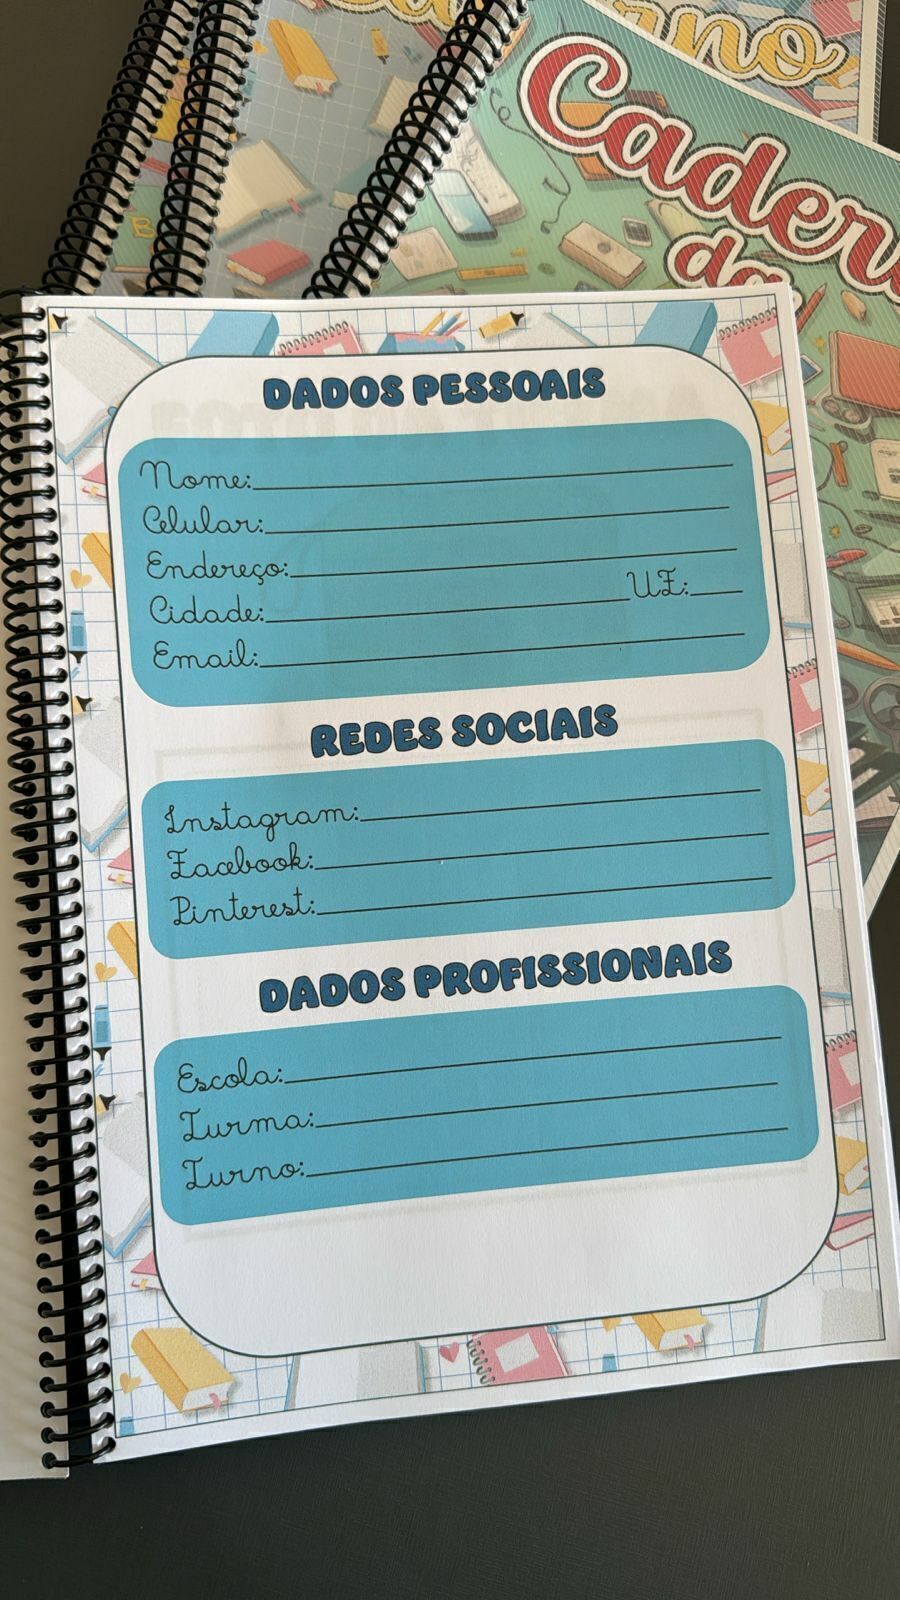 Cader
da
DADOS PESSOAIS
Nome:
Celular:
Endereço:
Cidade: UF:
Email:
REDES SOCIAIS
Instagram:
Facebook:
Pinterest:
DADOS PROFISSIONAIS
Escola:
Turma:
Turno: